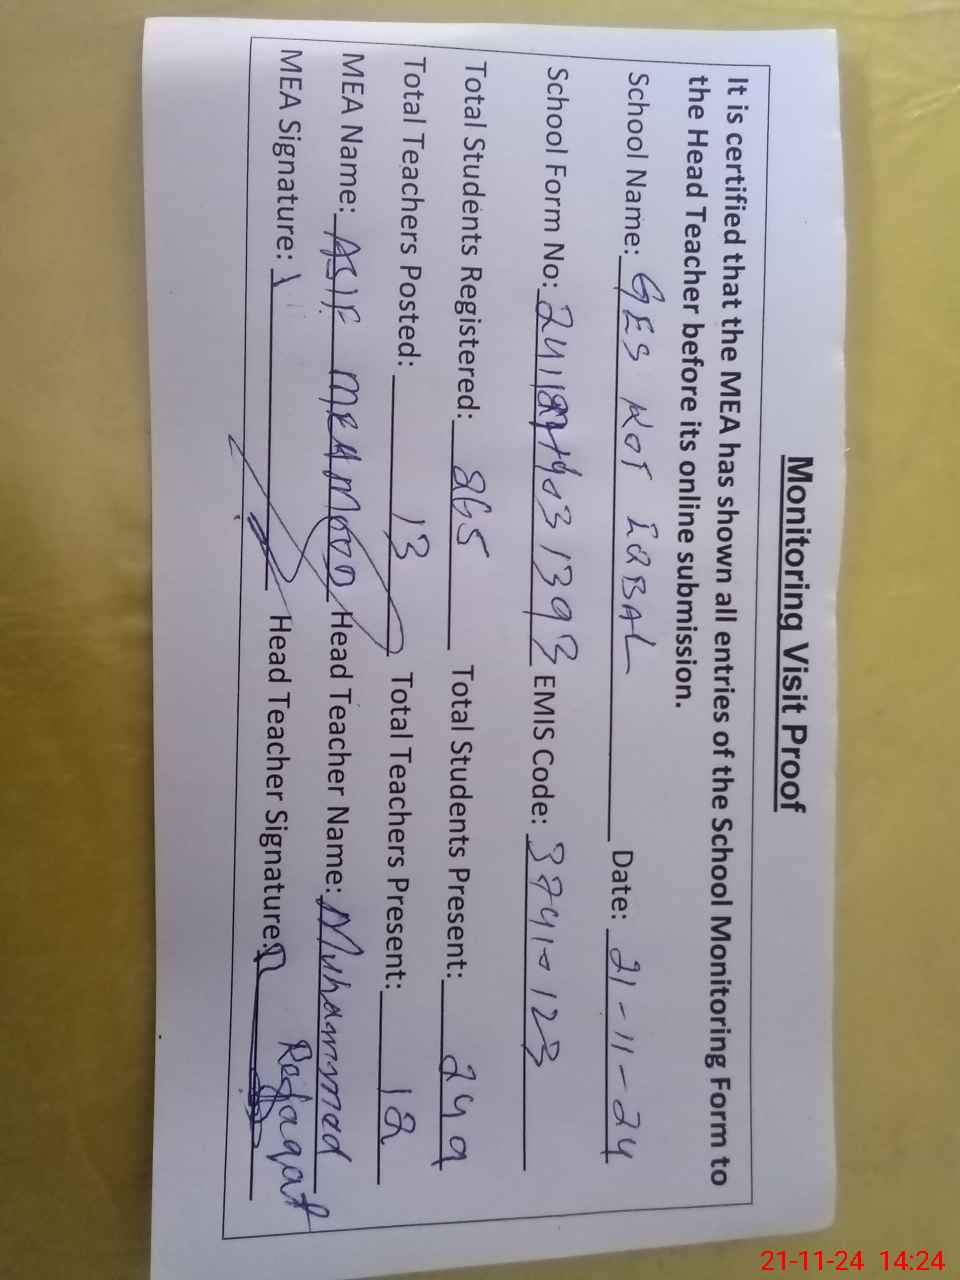 Monitoring Visit Proof
It is certified that the MEA has shown all entries of the School Monitoring Form to
the Head Teacher before its online submission.
School Name: GES KOT IQBAL Date: 21-11-24
School Form No: EMIS Code:
Total Students Registered: 265 Total Students Present: 249
Total Teachers Posted: 13 Total Teachers Present: 12
MEA Name: ASIF MEHMOOD Head Teacher Name: Muhammad Refaqat
MEA Signature: Head Teacher Signature:
21-11-24 14:24